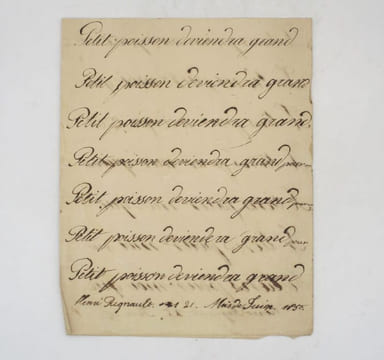 Petit poisson deviendra grand
Petit poisson deviendra grand
Petit poisson deviendra grand.
Petit poisson deviendra grand
Petit poisson deviendra grand
Petit poisson deviendra grand
Petit poisson deviendra grand
Henri Regnault 21. Juin